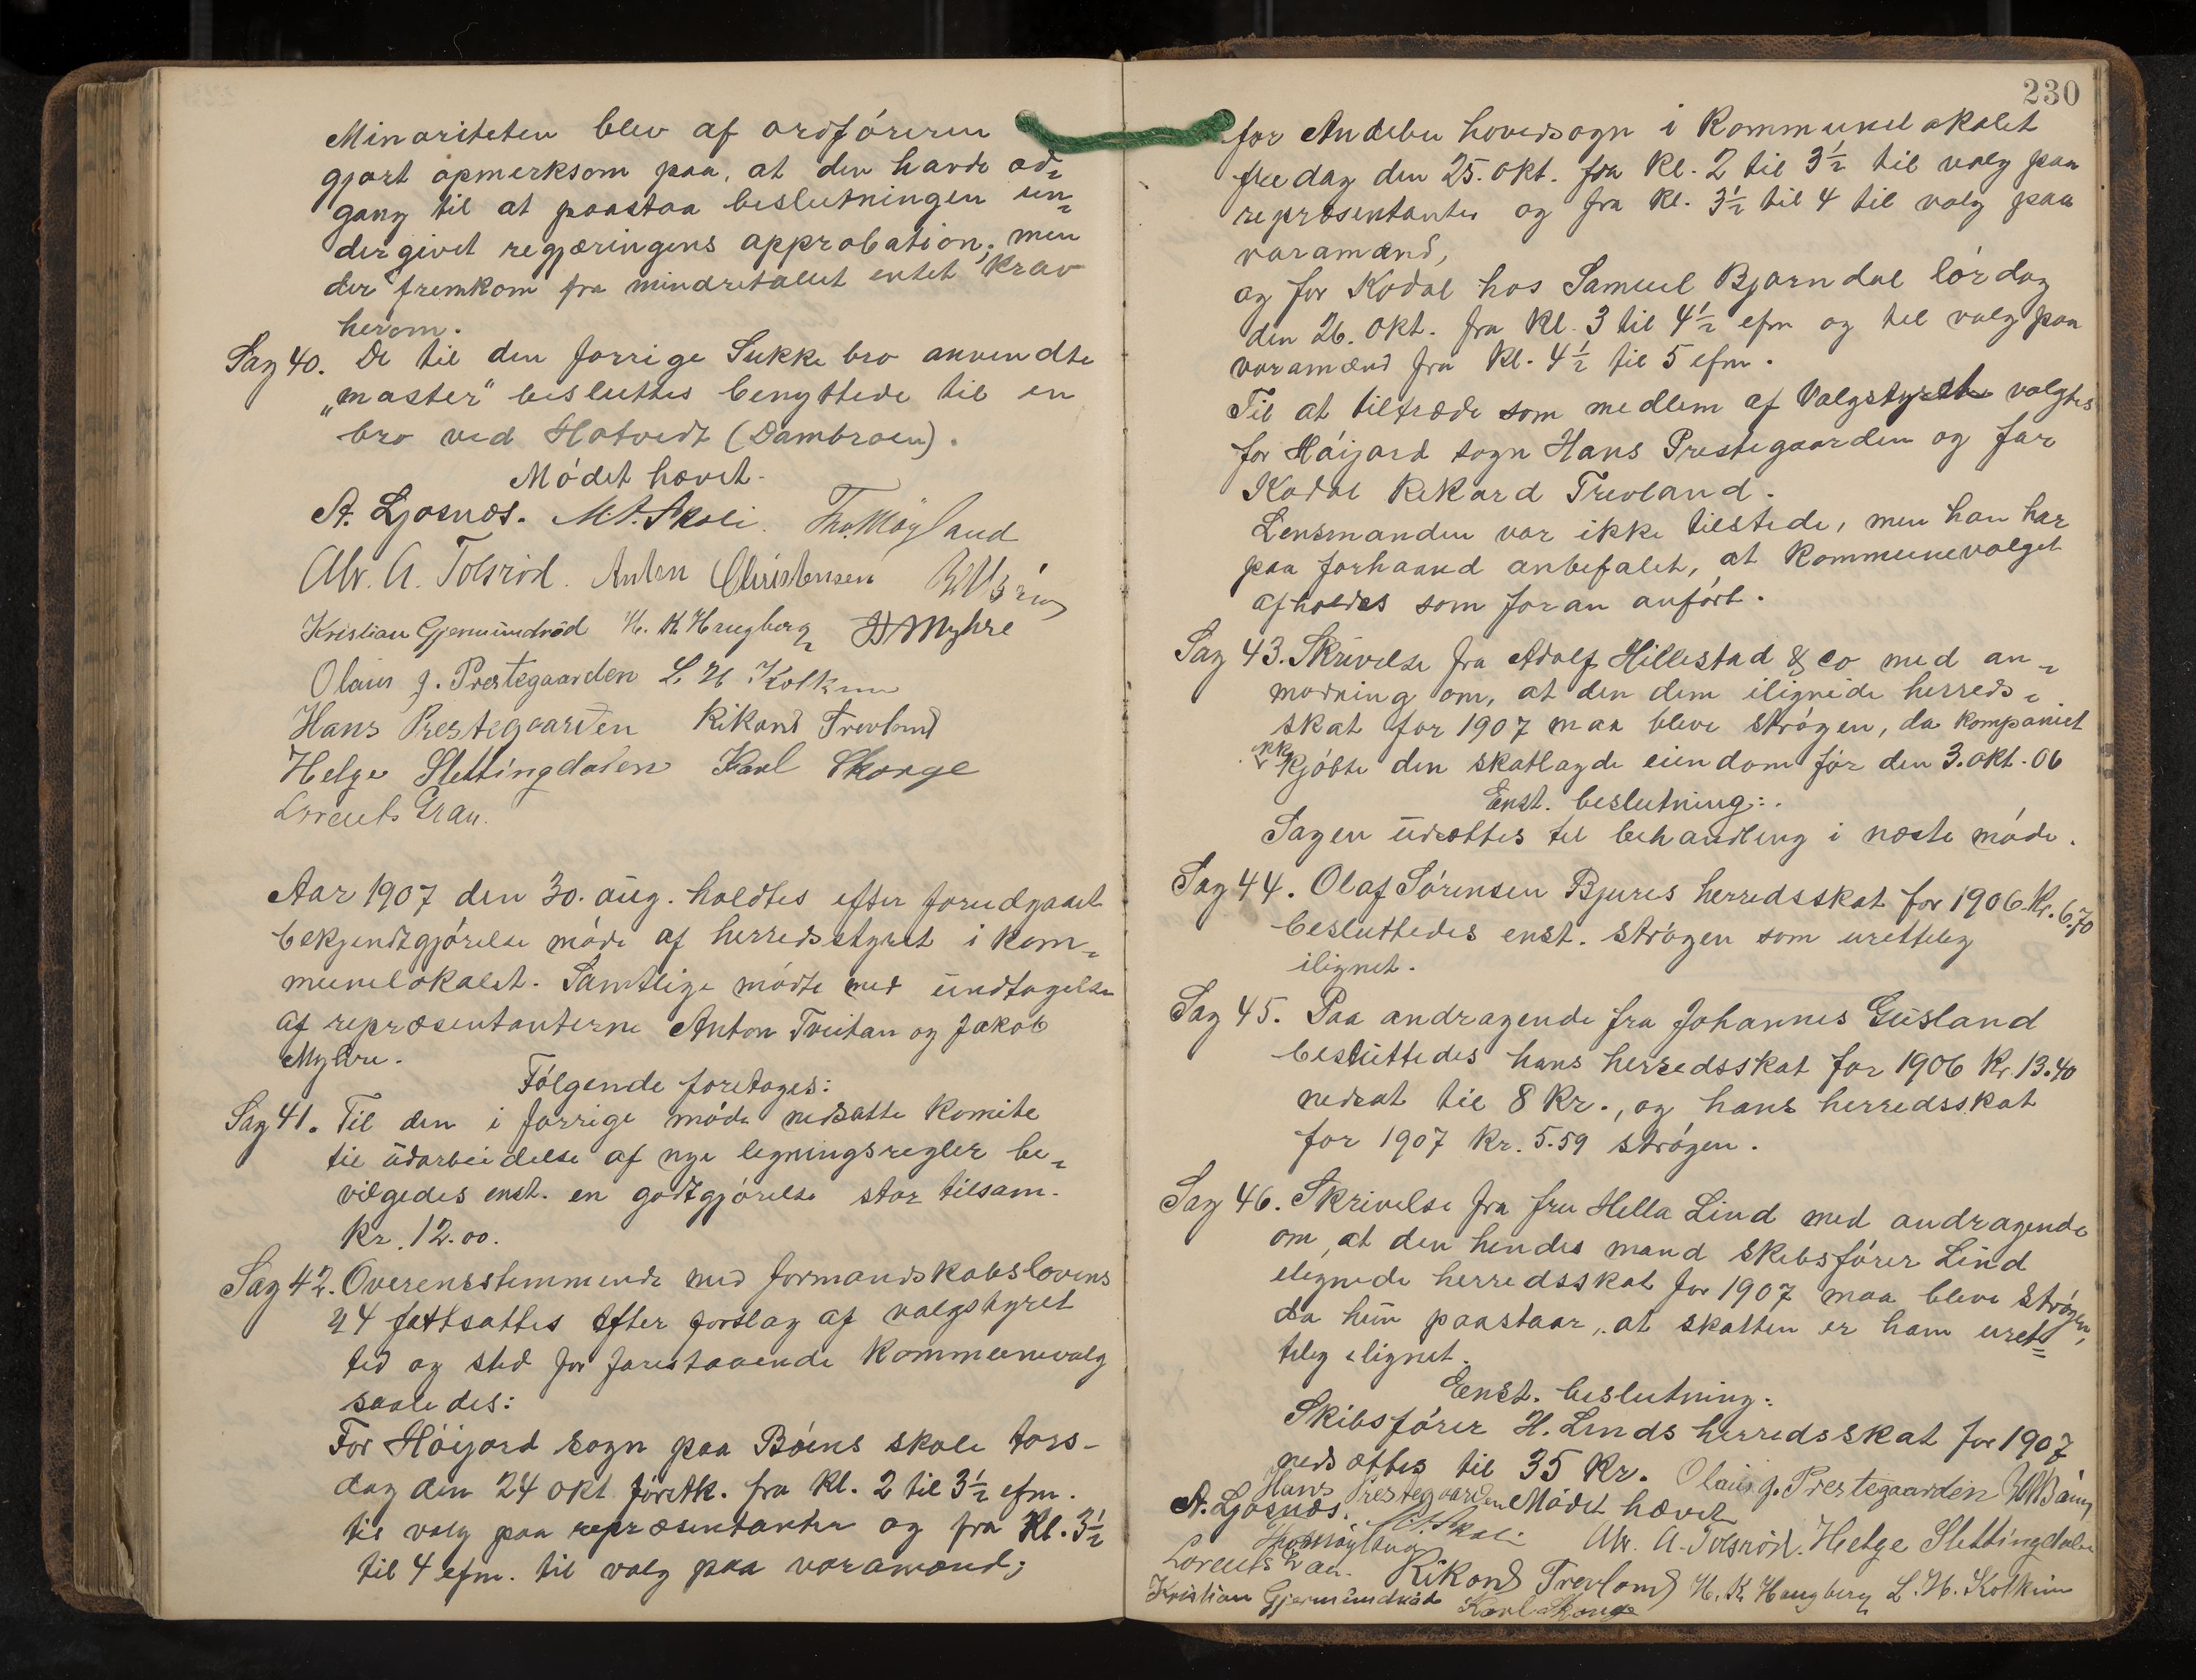 Minoriteten blev af ordføreren
gjort opmerksom paa, at den havde ad-
gang til at paastaa beslutningen un-
dergivet regjæringens approbation; men
der fremkom fra mindretallet intet krav
herom.
Sag 40. De til den forrige Sukke bro anvendte
„master“ besluttes benyttede til en
bro ved Hotvedt (Dambroen).
Mødet hævet.
A. Ljosnæs. M. A. Skoli. Tho. Møyland
Alv. A. Tolsrød. Anton Christensen
Kristian Gjermundrød H. K. Haugberg Myhre
Olaus J. Prestegaarden L. H. Kolkinn
Hans Prestegaarden Rikard Trevland
Helge Slettingdalen Karl Skorge
Lorents Grau.
Aar 1907 den 30. aug. holdtes efter forudgaaet
bekjendtgjørelse møde af herredsstyret i kom-
munelokalet. Samtlige mødte med undtagelse
af repræsentanterne Anton Trevitan og Jakob
Myhre.
Følgende foretoges:
Sag 41. Til den i forrige møde nedsatte komite
til udarbeidelse af nye ligningsregler be-
vilgedes enst. en godtgjørelse stor tilsam.
Kr. 12.00.
Sag 42. Overensstemmende med formandskabslovens
§ 4 fastsattes efter forslag af valgstyret
tid og sted for forestaaende kommunevalg
saaledes:
For Høijord sogn paa Bøens skole tors-
dag den 24 okt førstk. fra kl. 2 til 3½ efm.
til valg paa repræsentanter og fra Kl. 3½
til 4 efm. til valg paa varamænd;
230
for Andebu hovedsogn i Kommunelokalet
fredag den 25. okt. fra kl. 2 til 3½ til valg paa
repræsentanter og fra kl. 3½ til 4 til valg paa
varamænd,
og for Kodal hos Samuel Bjørndal lørdag
den 26. okt. fra kl. 3 til 4½ efm og til valg paa
varamænd fra kl. 4½ til 5 efm.
Til at tiltræde som medlem af Valgstyret valgtes
for Høijord sogn Hans Prestegaarden og for
Kodal Rikard Trevland.
Lensmanden var ikke tilstede, men han har
paa forhaand anbefalet, at kommunevalget
afholdes som foran anført.
Sag 43. Skrivelse fra Adolf Hillestad & co med an-
modning om, at den dem ilignede herreds-
skat for 1907 maa blive strøgen, da kompaniet
ikke kjøbte den skatlagde eiendom før den 3. okt. 06
Enst. beslutning:
Sagen udsættes til behandling i næste møde.
Sag 44. Olaf Sørensen Bjures herredsskat for 1906 Kr. 6.70
besluttedes enst. strøgen som urettelig
ilignet.
Sag 45. Paa andragende fra Johannes Gusland
besluttedes hans herredsskat for 1906 Kr 13.40
nedsat til 8 Kr., og hans herredsskat
for 1907 Kr. 5.59 strøgen.
Sag 46. Skrivelse fra fru Hella Lind med andragende
om, at den hendes mand skibsfører Lind
ilignede herredsskat for 1907 maa blive strøgen,
da hun paastaar, at skatten er ham uret-
telig ilignet.
Enst. beslutning:
Skibsfører H. Linds herredsskat for 1907
nedsættes til 35 Kr. Olaus J. Prestegaarden
Hans Prestegaarden Mødet hævet
A. Ljosnæs. M. A. Skoli Alv. A. Tolsrød. Helge Slettingdalen
Tho Møyland
Lorents Grau. Rikard Trevland H. K. Haugberg L. H. Kolkinn
Kristian Gjermundrød Karl Skorge